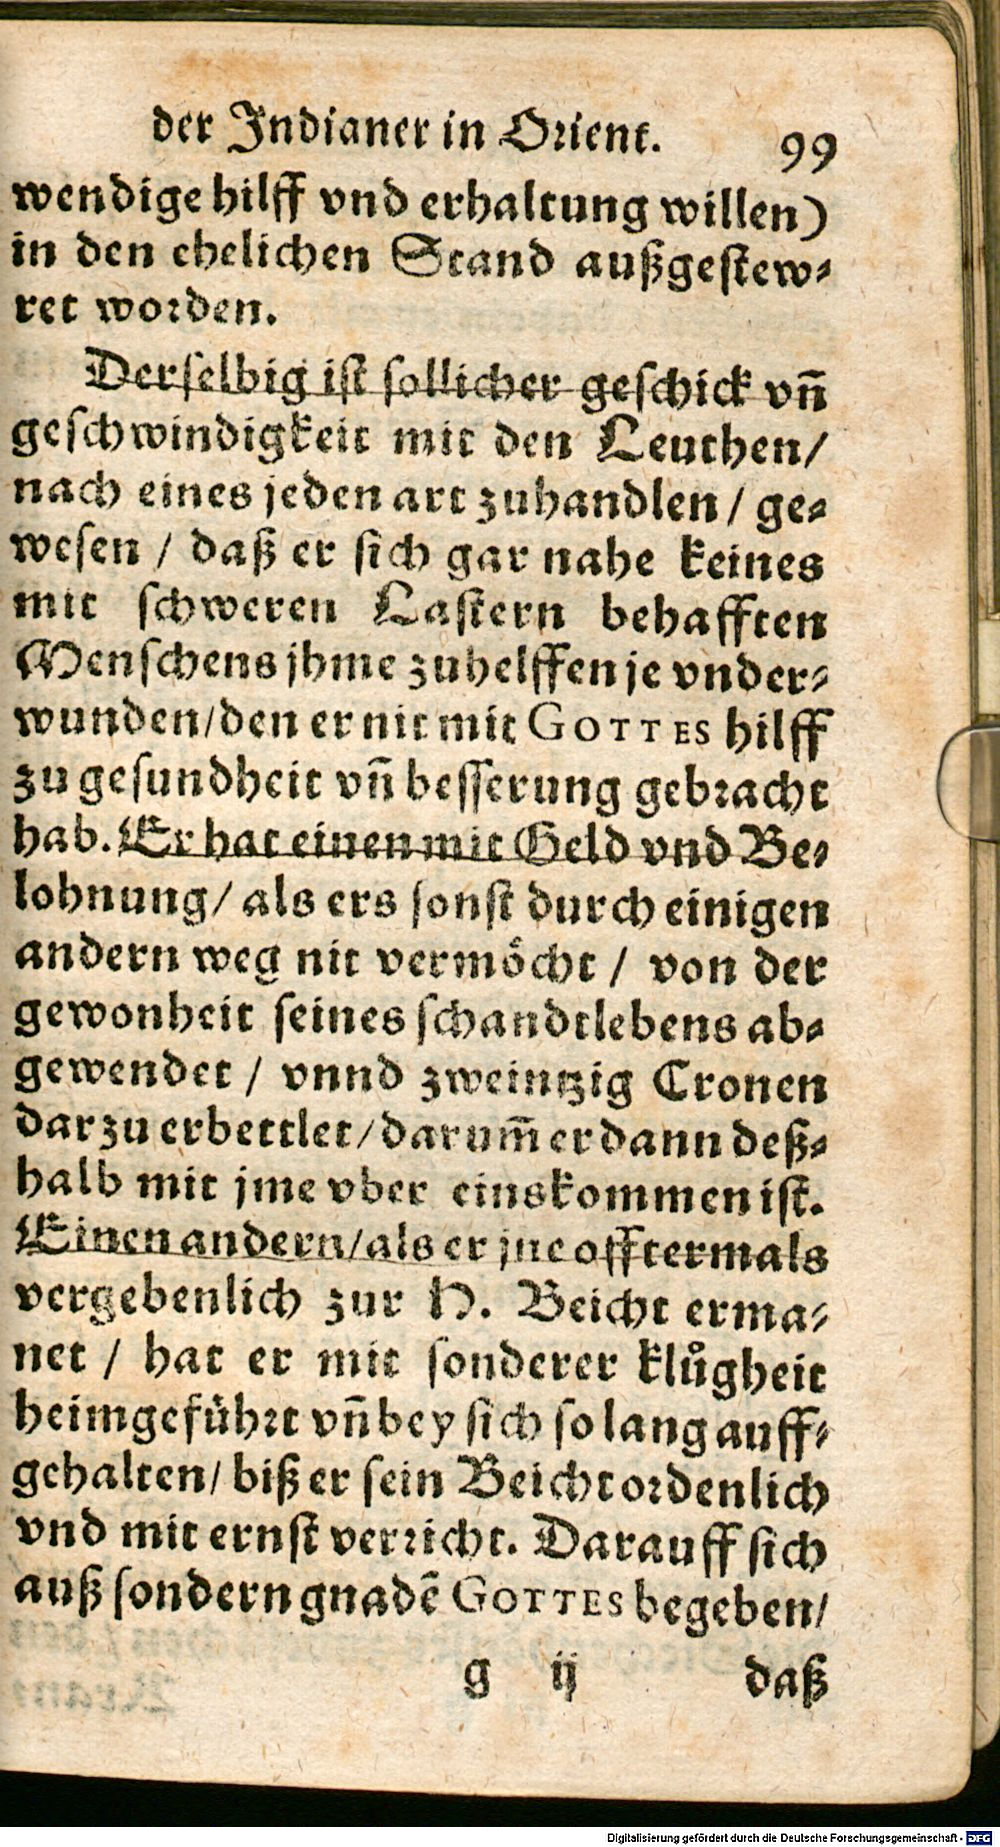 der Indianer in Orient. 99
wendige hilff vnd erhaltung willen)
in den ehelichen Stand außgestew⸗
ret worden.
Derselbig ist sollicher geschick vñ
geschwindigkeit mit den Leuthen/
nach eines jeden art zuhandlen / ge⸗
wesen / daß er sich gar nahe keines
mit schweren Lastern behafften
Menschens jhme zuhelffen je vnder⸗
wunden/den er nit mit GOTTES hilff
zu gesundheit vñ besserung gebracht
hab. Er hat einen mit Geld vnd Be⸗
lohnung/ als ers sonst durch einigen
andern weg nit vermöcht / von der
gewonheit seines schandtlebens ab⸗
gewendet / vnnd zweintzig Cronen
darzu erbettlet/darum̃ er dann deß⸗
halb mit jme vber einskommen ist.
Einen andern/als er jne offtermals
vergebenlich zur H. Beicht erma⸗
net / hat er mit sonderer klůgheit
heimgeführt vñ bey sich so lang auff⸗
gehalten/ biß er sein Beicht ordenlich
vnd mit ernst verricht. Darauff sich
auß sondern gnadẽ GOTTES begeben/
g ij daß
Digitalisierung gefördert durch die Deutsche Forschungsgemeinschaft - DFG